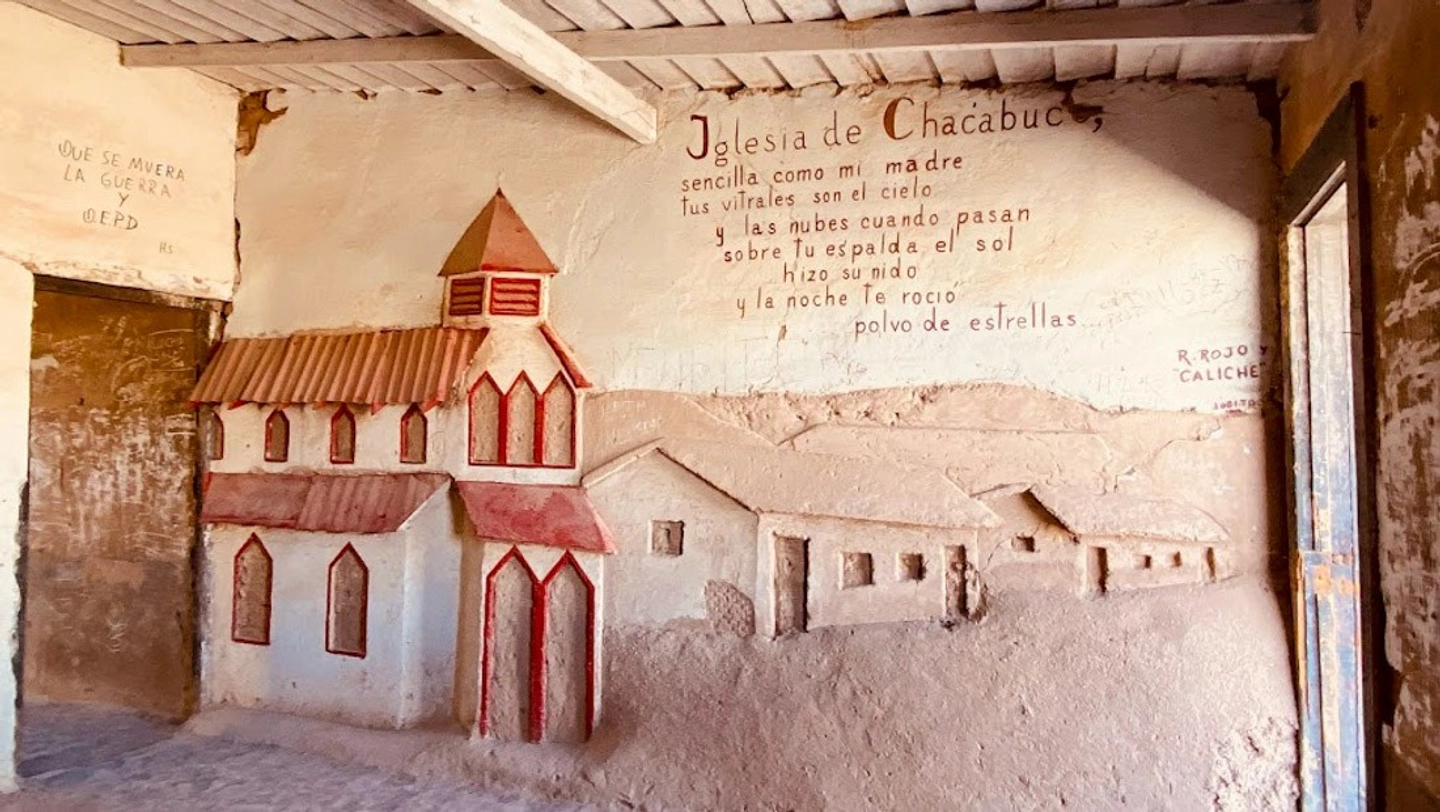 QUE SE MUERA
LA GUERRA
Y
Q.E.P.D
Iglesia de Chacabuco,
sencilla como mi madre
tus vitrales son el cielo
y las nubes cuando pasan
sobre tu espalda el sol
hizo su nido
y la noche te roció
polvo de estrellas
R. ROJO Y
"CALICHE"